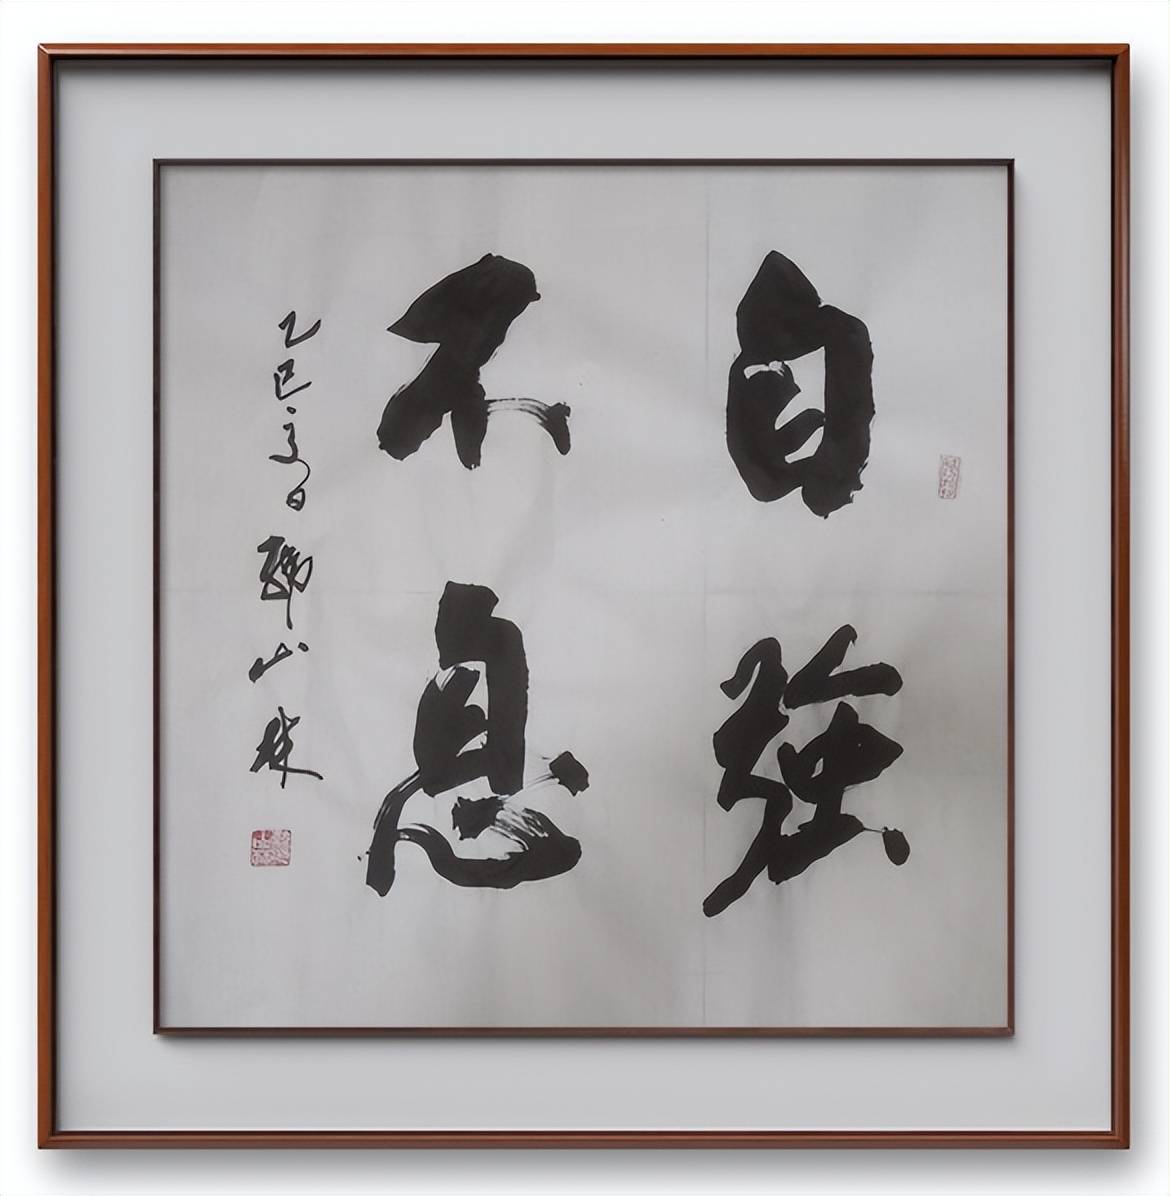 自強
不息
乙巳夏日山林